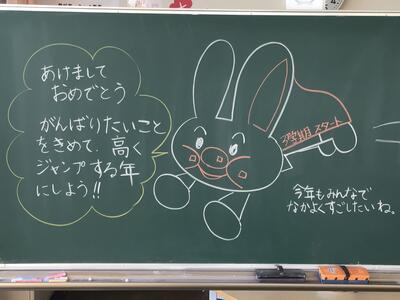 あけまして
おめでとう
がんばりたいこと
をきめて、高く
ジャンプする年
にしよう!!
3学期スタート
今年もみんなで
なかよくすごしたいね。